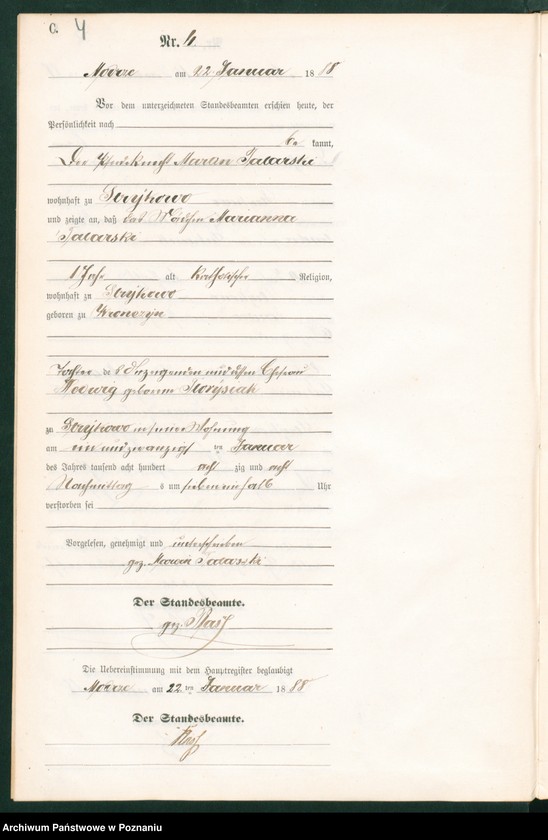 C. 4
Nr. 4
Modrze am 22 Januar 1888
Vor dem unterzeichneten Standesbeamten erschien heute, der
Persönlichkeit nach
be kannt,
Der Pferdeknecht Martin Talarski
wohnhaft zu Strykowo
und zeigte an, daß das Mädchen Marianna
Talarski
1 Jahr alt katholischer Religion,
wohnhaft zu Strykowo
geboren zu
Tochter des Anzeigenden und dessen Ehefrau
Hedwig geborene
zu Strykowo in seiner Wohnung
am ein und zwanzigsten Januar
des Jahres tausend acht hundert acht zig und acht
Nachmittag s um sieben einhalb Uhr
verstorben sei
Vorgelesen, genehmigt und unterschrieben
gez. Marcin Talarski
Der Standesbeamte.
gez.
Die Uebereinstimmung mit dem Hauptregister beglaubigt
Modrze am 22 ten Januar 1888
Der Standesbeamte.
Archiwum Państwowe w Poznaniu